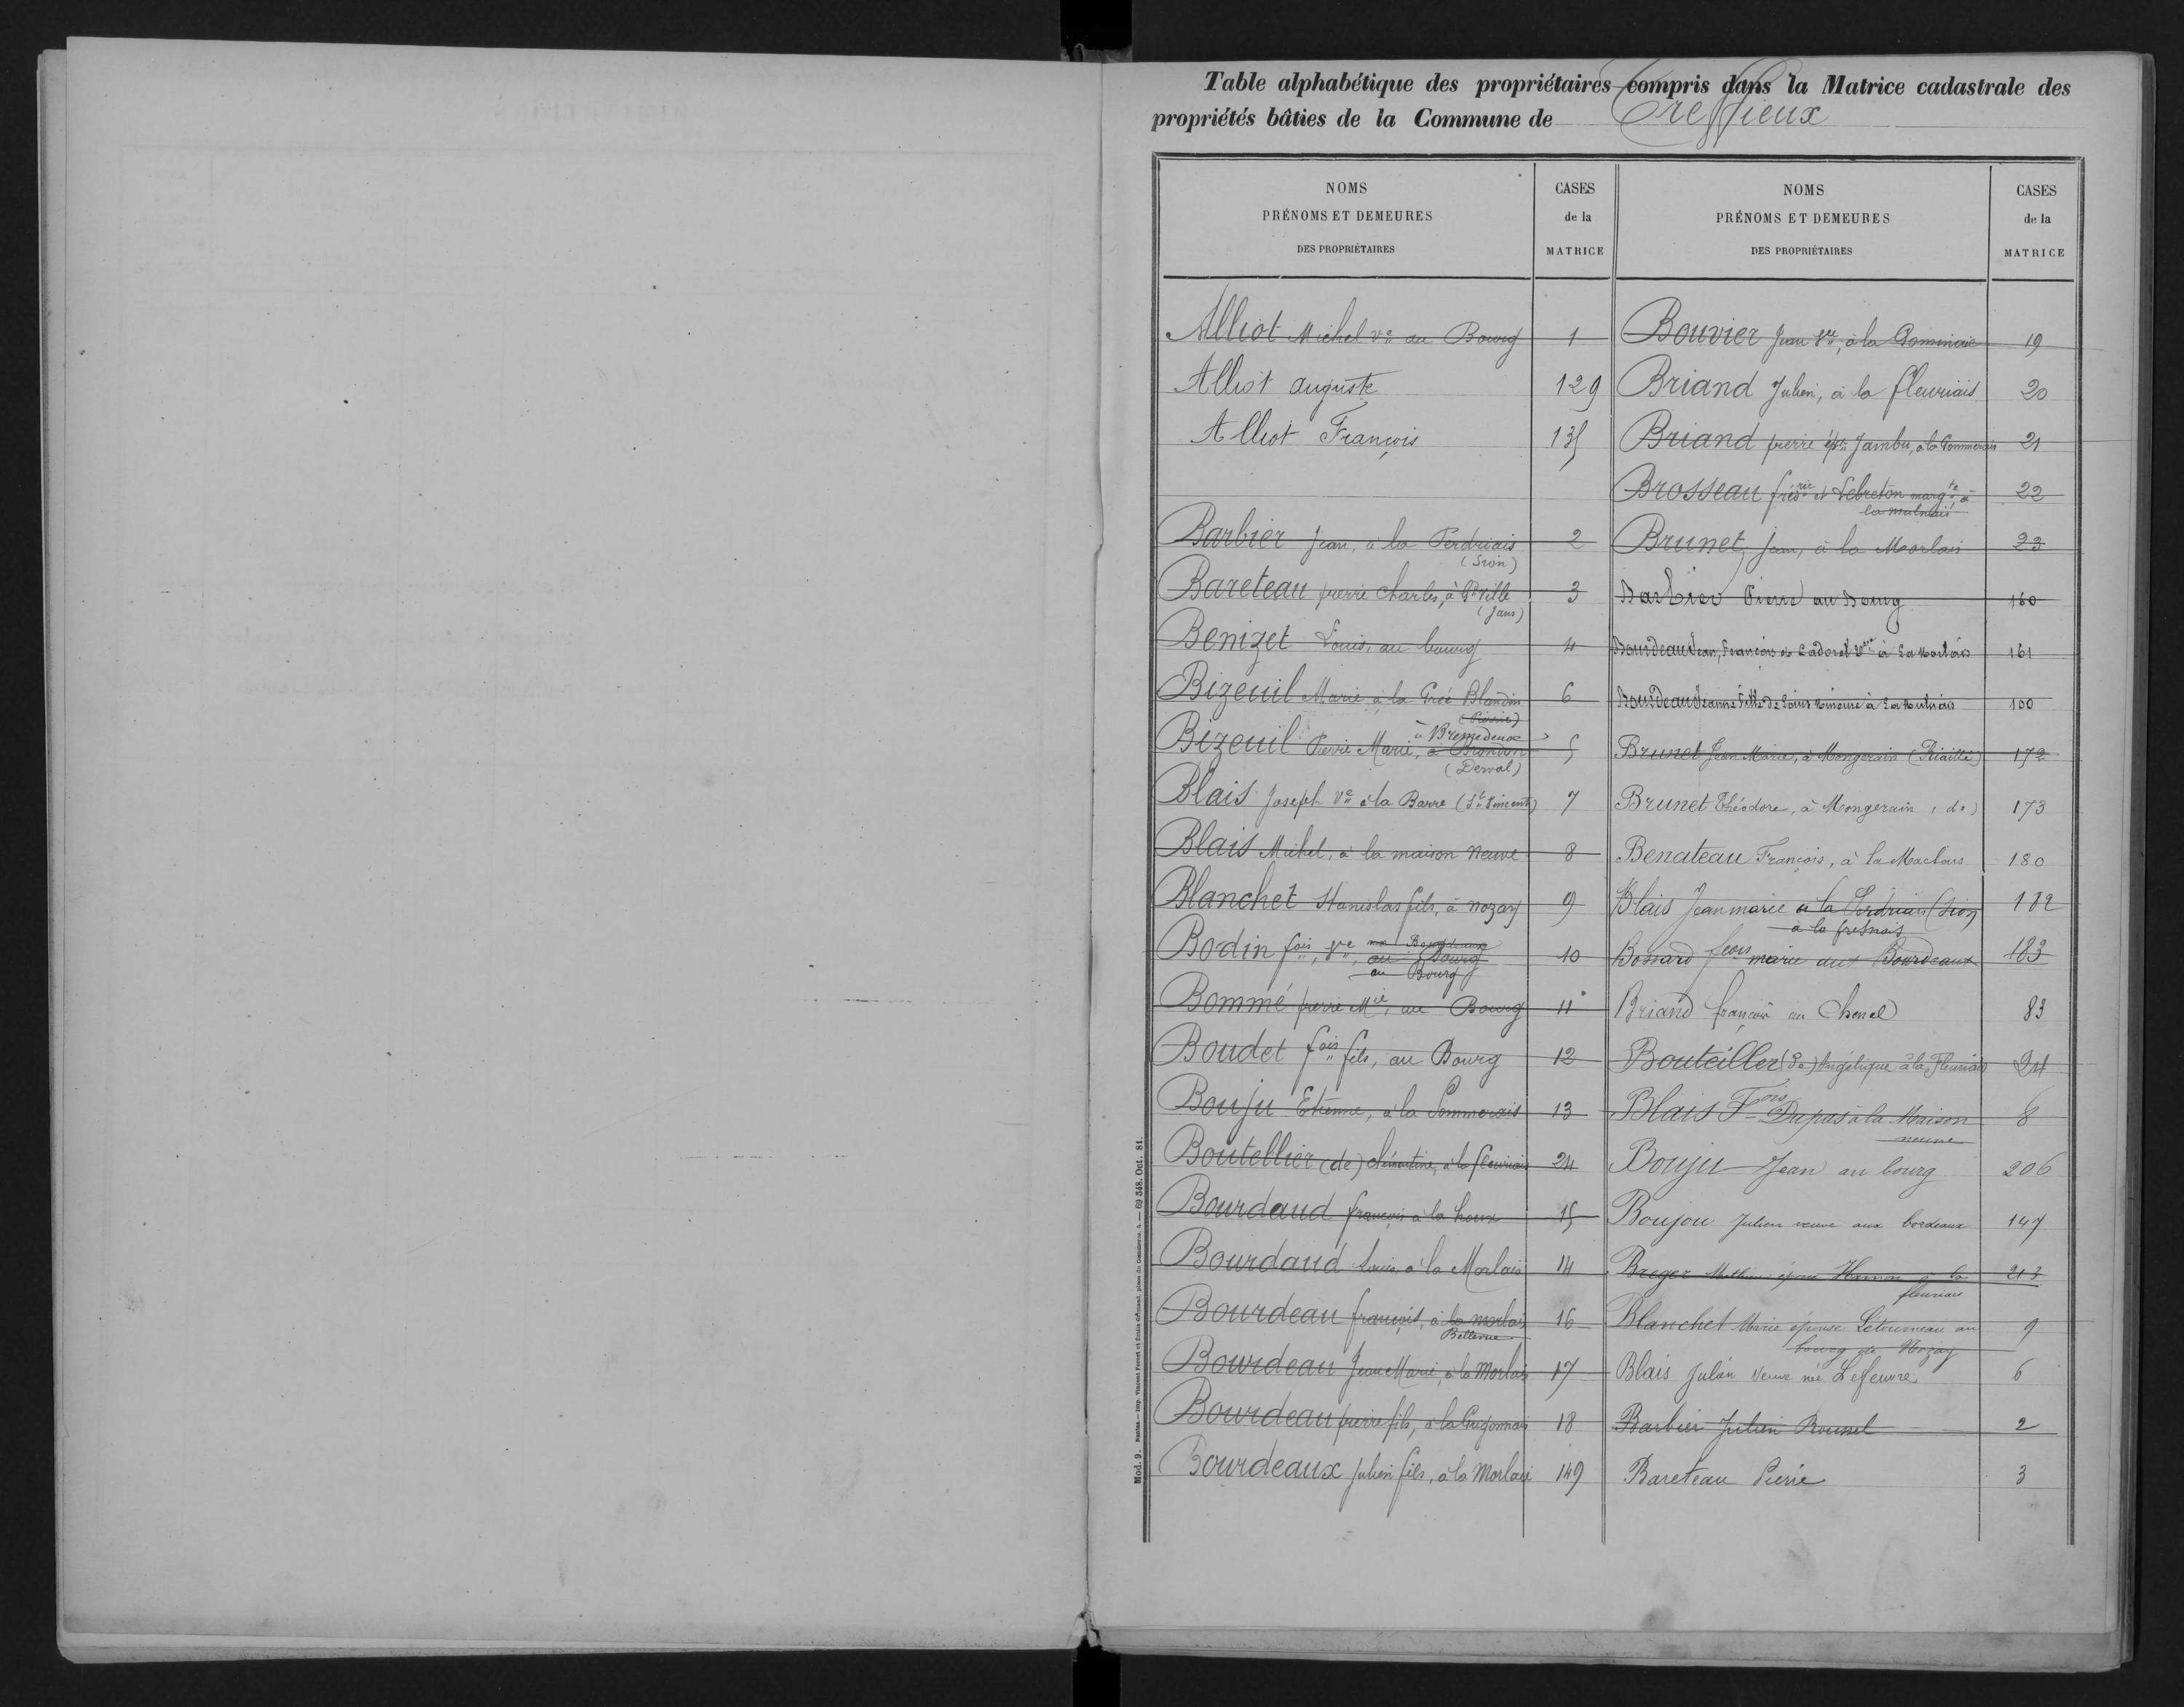 Table alphabétique des propriétaires compris dans la Matrice cadastrale des
propriétés bâties de la Commune de Treffieux
NOMS
PRÉNOMS ET DEMEURES
DES PROPRIÉTAIRES
CASES
de la
MATRICE
Alliot Michel Ve au Bourg 1
Alliot auguste 129
Alliot François 135
Barbier Jean, à la Perdriais 2
(Sion)
Bareteau pierre Charles, à Pt Ville 3
(Jans)
Benizet Louis, au bourg 4
Bizeuil Marie à la Grée Blandin 6
Bizeuil Pierre Marie, à Brondin 5
(Derval)
Blais Joseph Ve à la Barre (St Vincent) 7
Blais Michel, à la maison neuve 8
Blanchet Stanislas fils, à nozay 9
Bodin fois, Ve, au Bourg 10
au Bourg
Bommé pierre Mie, au Bourg 11
Boudet fois fils, au Bourg 12
Bouju Etienne, à la Pommerais 13
Boutellier (de) clémentine, à la fleuriais 24
Bourdaud françois à la houx 15
Bourdaud Louis, à la Morlais 14
Bourdeau françois, à la morlais 16
Bellevue
Bourdeau Jean Marie, à la Morlais 17
Bourdeau pierre fils, à la Grigonnais 18
Bourdeaux Julien fils, à la Morlais 149
NOMS
PRÉNOMS ET DEMEURES
DES PROPRIÉTAIRES
CASES
de la
MATRICE
Bouvier Jean Ve, à la 19
Briand Julien, à la fleuriais 20
Briand pierre épse Jambu, à la Pommerais 21
Brosseau et Lebreton margte à 22
la mulnais
Brunet, jean, à la Morlais 23
Barbier Pierre au Bourg 160
Bourdeau Jean, François et Cadorel Vve à La Morlais 161
Bourdeau Jeanne fille de Louis Mineure à La Mulnais 100
Brunet Jean Marie, à Mongerain (Riaillé) 172
Brunet Théodore, à Mongerain (do) 173
Benateau François, à la 180
Blais Jean marie à la Perdriais (Sion) 182
à la fresnais
Bossard feois marie aux Bourdeaux 183
Briand françois au Chenel 83
Bouteiller (De) Angélique à la Fleuriais 24
Blais Fois Dupas à la Maison 8
neuve
Bouju Jean au bourg 206
Boujou Julien veuve aux bordeaux 147
Breger épouse Hamon à la 213
fleuriais
Blanchet Marie épouse Letourneau au 9
bourg de Nozay
Blais Julien Veuve née Lefeuvre 6
Barbier Julien Roussel 2
Bareteau Pierre 3
Mod. 9. Nantes.
69 348. Oct. 81.